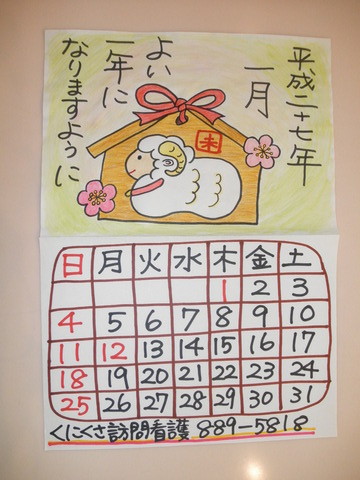 平成二十七年
一月
よい
一年に
なりますように
未
日 月 火 水 木 金 土
1 2 3
4 5 6 7 8 9 10
11 12 13 14 15 16 17
18 19 20 21 22 23 24
25 26 27 28 29 30 31
くにくさ訪問看護 889-5818